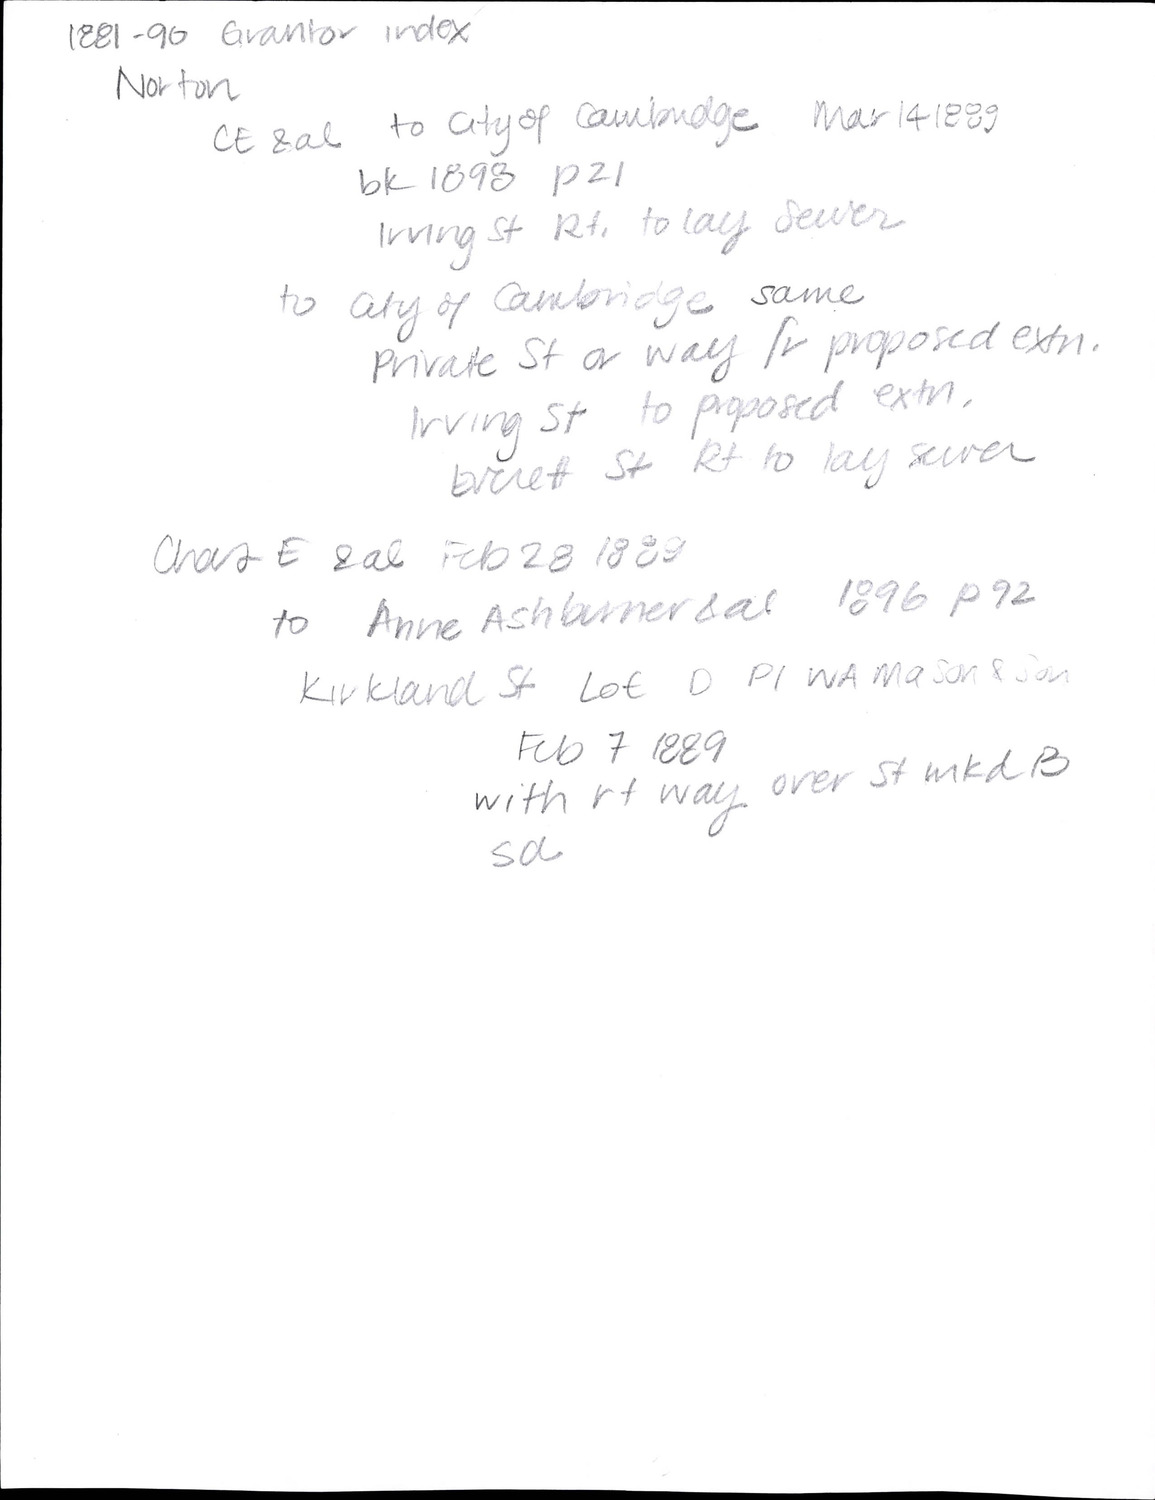 1881-90 Grantor index
Norton
CE & al to City of Cambridge Mar 14 1889
bk 1893 p21
Irving St Rt. to lay Sewer
to City of Cambridge same
Private St or way fr proposed extn.
Irving St to proposed extn.
Everett St Rt to lay sewer
Chas E & al Feb 28 1889
to Anne Ashburner & al 1896 p 92
Kirkland St Lot D Pl WA Mason & Son
Feb 7 1889
with rt way over St mkd B
sd